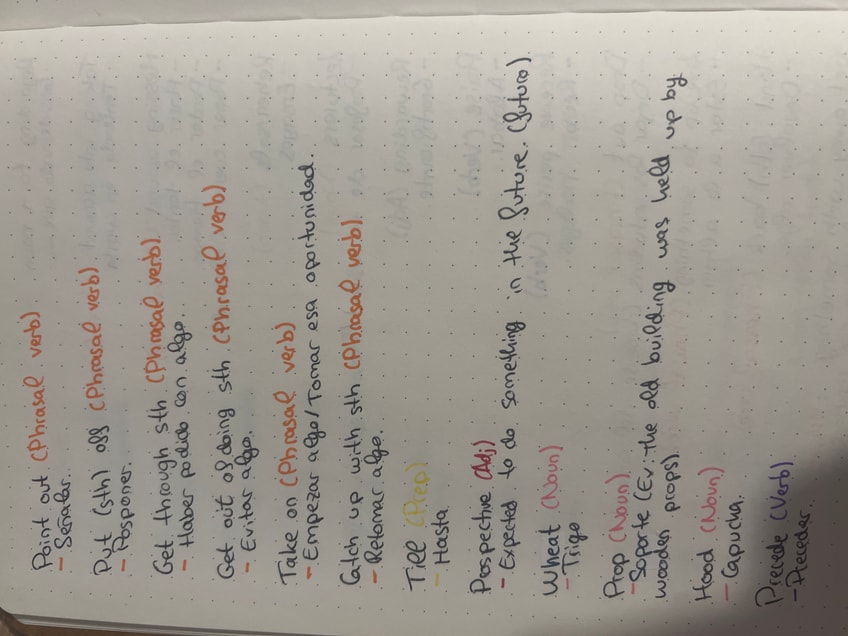 Point out (Phrasal verb)
- Señalar.
Put (sth) off (Phrasal verb)
- Posponer.
Get through sth (Phrasal verb)
- Haber podido con algo.
Get out of doing sth (Phrasal verb)
- Evitar algo.
Take on (Phrasal verb)
- Empezar algo/Tomar esa oportunidad.
Catch up with sth (Phrasal verb)
- Retomar algo.
Till (Prep)
- Hasta
Pospective (Adj)
- Expected to do something in the future. (futuro)
Wheat (Noun)
- Trigo
Prop (Noun)
- Soporte (Ev: the old building was held up by
wooden props).
Hood (Noun)
- Capucha.
Precede (Verb)
- Preceder.